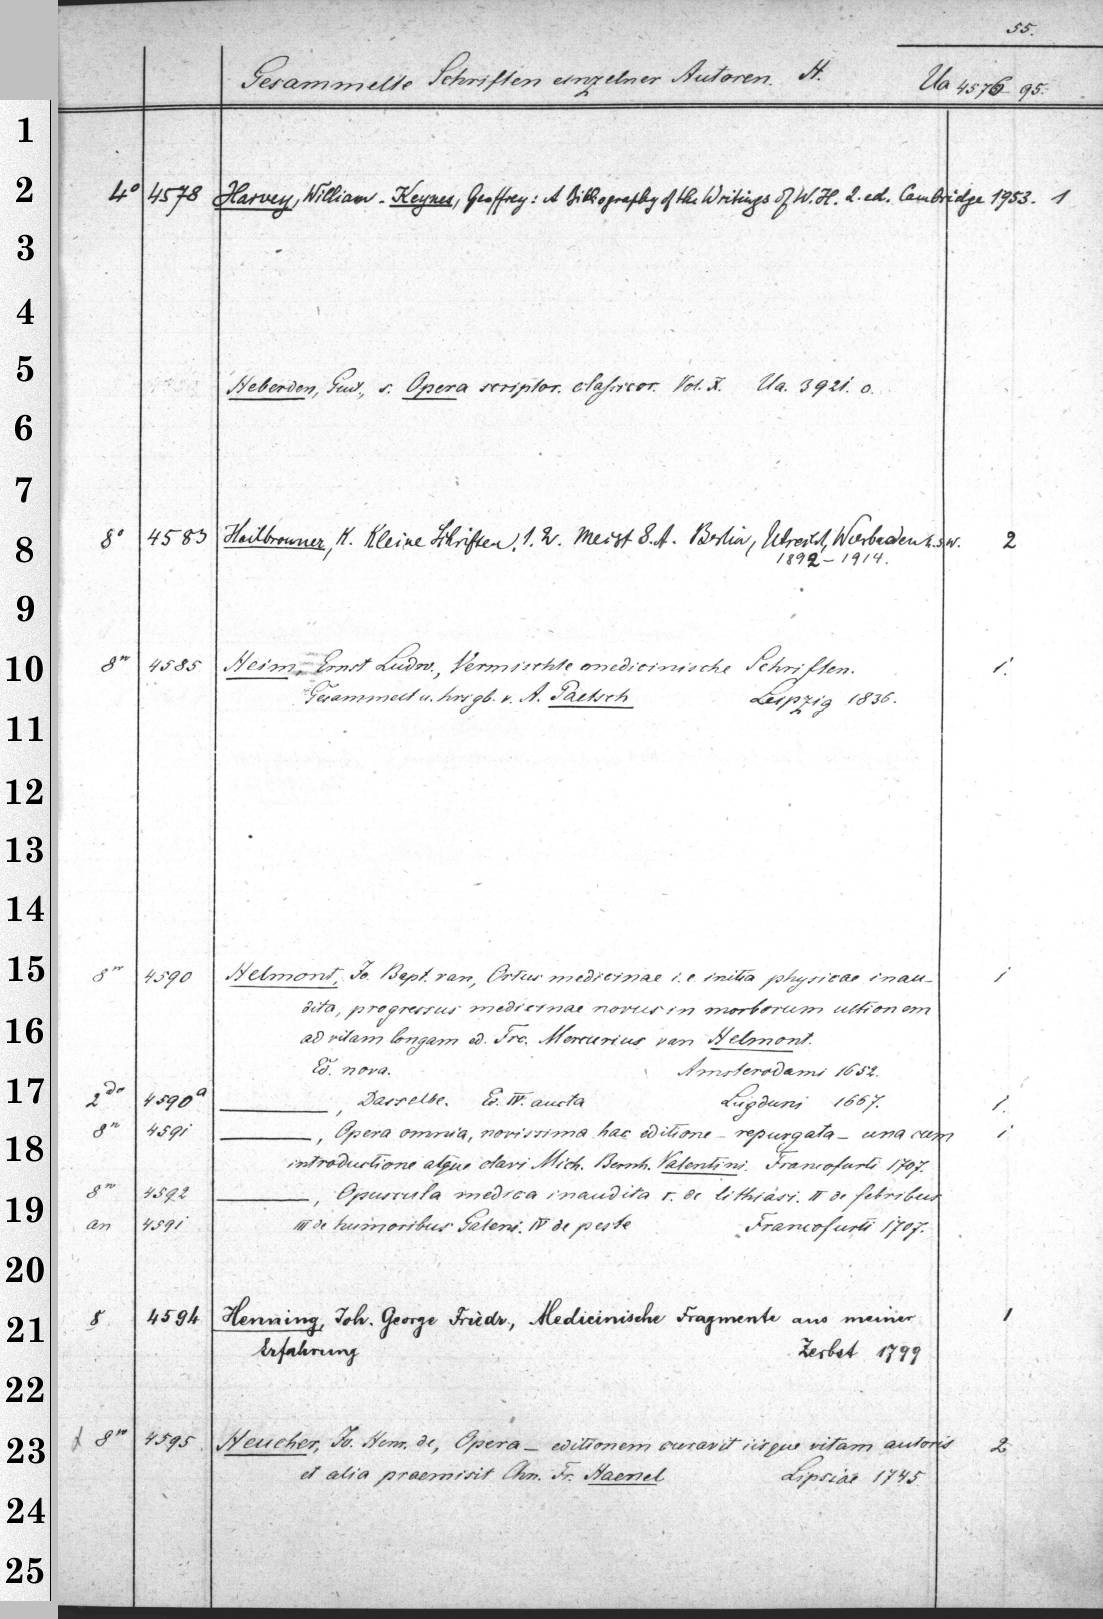 55.
Gesammelte Schriften einzelner Autoren. H. Ua 4576 95.
1
2 4° 4578 Harvey, William - Keynes, Geoffrey: A Bibliography of the Writings of W. H. 2. ed. Cambridge 1953. 1
3
4
5 Heberden, Guil., s. Opera scriptor. classicor. Vol. X. Ua. 392i. o.
6
7
8 8° 4583 Heilbronner, K. Kleine Schriften. 1. 2. Meist S. A. Berlin, Utrecht, Wiesbaden u.s.w. 2
1892 - 1914.
9
10 8° 4585 Heim, Ernst Ludw., Vermischte medicinische Schriften. i.
Gesammelt u. hrsgb. v. A. Paetsch Leipzig 1836.
11
12
13
14
15 8° 4590 Helmont, Jo. Bapt. van, Ortus medicinae i.e. initia physicae inau-
dita, progressus medicinae novus in morborum ultionem
16 ad vitam longam ed. Frc. Mercurius van Helmont.
Ed. nova. Amsterodami 1652.
17 2do 4590a ———, Dasselbe. Ed. IV. aucta Lugduni 1667. i.
18 8° 459i ———, Opera omnia, novissima hac editione - repurgata - una cum i
introductione atque clavi Mich. Bernh. Valentini. Francofurti 1707.
19 8° 4592 ———, Opuscula medica inaudita I. de lithiasi. II de febribus
an 459i III de humoribus Galeni. IV de peste Francofurti 1707.
20
21 8 4594 Henning, Joh. George Friedr., Medicinische Fragmente aus meiner 1
Erfahrung Zerbst 1799
22
23 8° 4595 Heucher, Jo. Henr. de, Opera - editionem curavit iisque vitam autoris 2
et alia praemisit Chn. Fr. Haenel Lipsiae 1745.
24
25